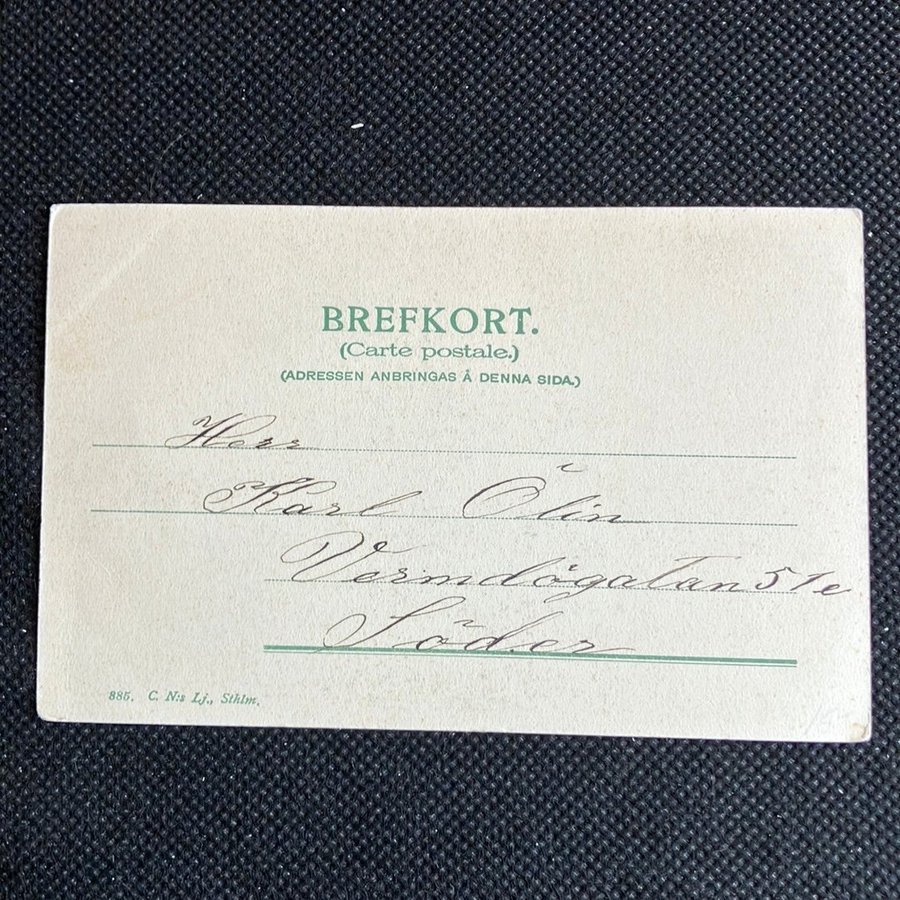 BREFKORT.
(Carte postale.)
(ADRESSEN ANBRINGAS Å DENNA SIDA.)
Herr
Karl Ölin
Vermdögatan 51e
Söder
885. C. N:s Lj., Sthlm.